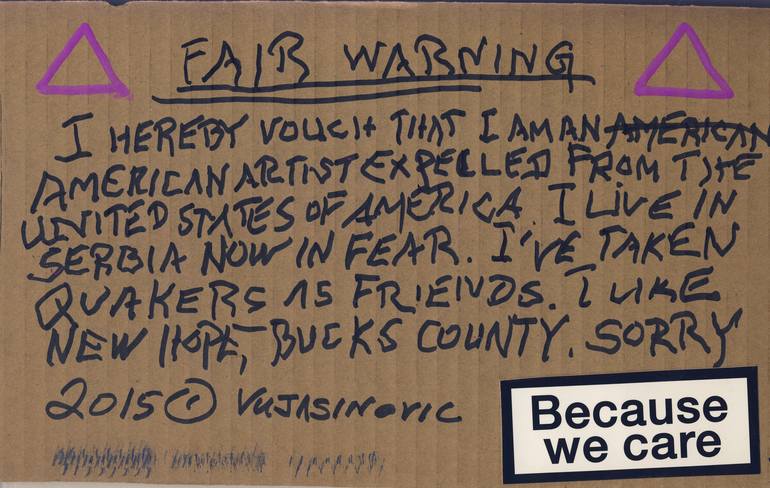 FAIR WARNING
I HEREBY VOUCH THAT I AM AN AMERICAN
AMERICAN ARTIST EXPELLED FROM THE
UNITED STATES OF AMERICA. I LIVE IN
SERBIA NOW IN FEAR. I'VE TAKEN
QUAKERS AS FRIENDS. I LIKE
NEW HOPE, BUCKS COUNTY. SORRY
2015 © VUJASINOVIC
Because
we care